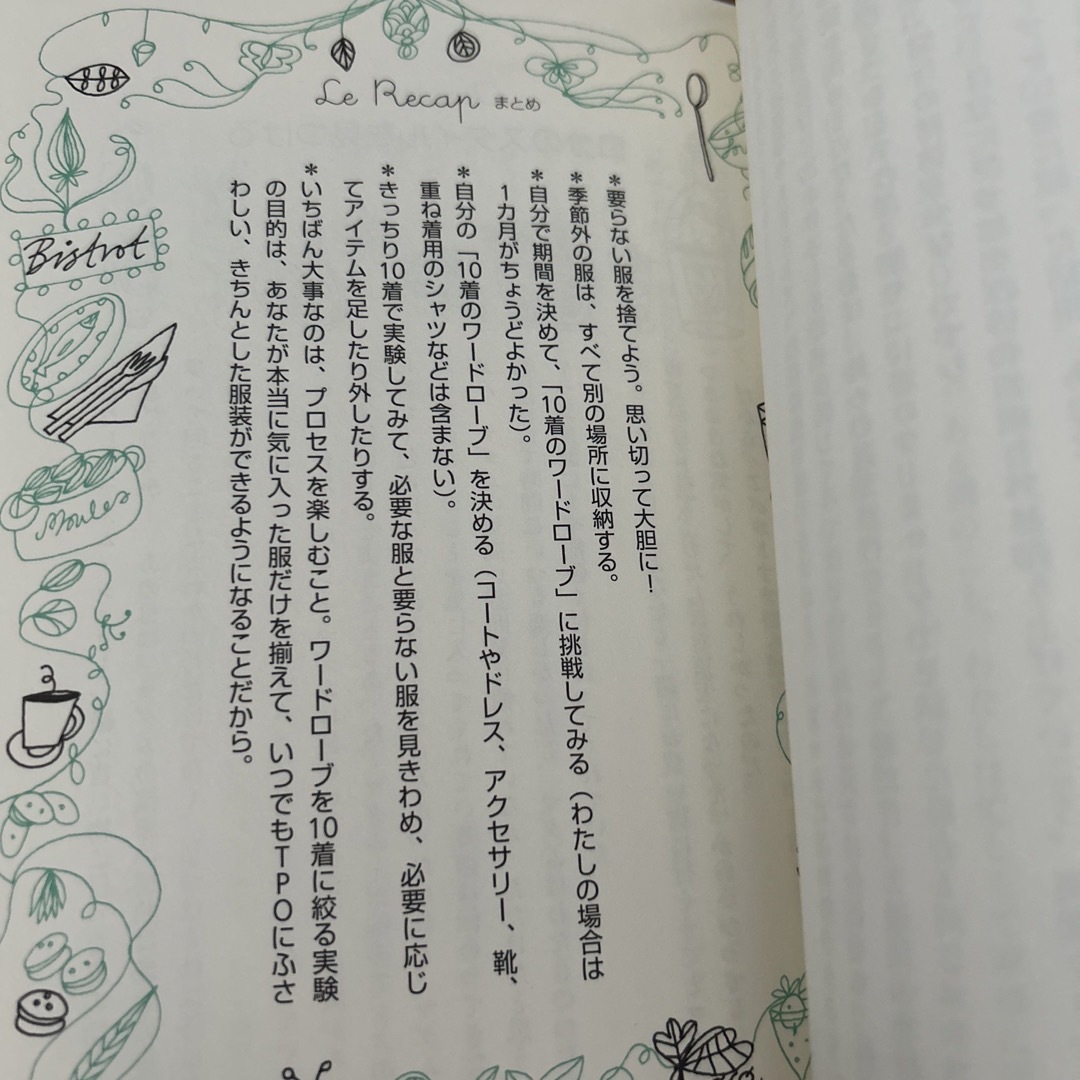 Le Recap まとめ
*要らない服を捨てよう。思い切って大胆に！
*季節外の服は、すべて別の場所に収納する。
*自分で期間を決めて、「10着のワードローブ」に挑戦してみる（わたしの場合は
1カ月がちょうどよかった）。
*自分の「10着のワードローブ」を決める（コートやドレス、アクセサリー、靴、
重ね着用のシャツなどは含まない）。
*きっちり10着で実験してみて、必要な服と要らない服を見きわめ、必要に応じ
てアイテムを足したり外したりする。
*いちばん大事なのは、プロセスを楽しむこと。ワードローブを10着に絞る実験
の目的は、あなたが本当に気に入った服だけを揃えて、いつでもTPOにふさ
わしい、きちんとした服装ができるようになることだから。
Bistrot
Moules